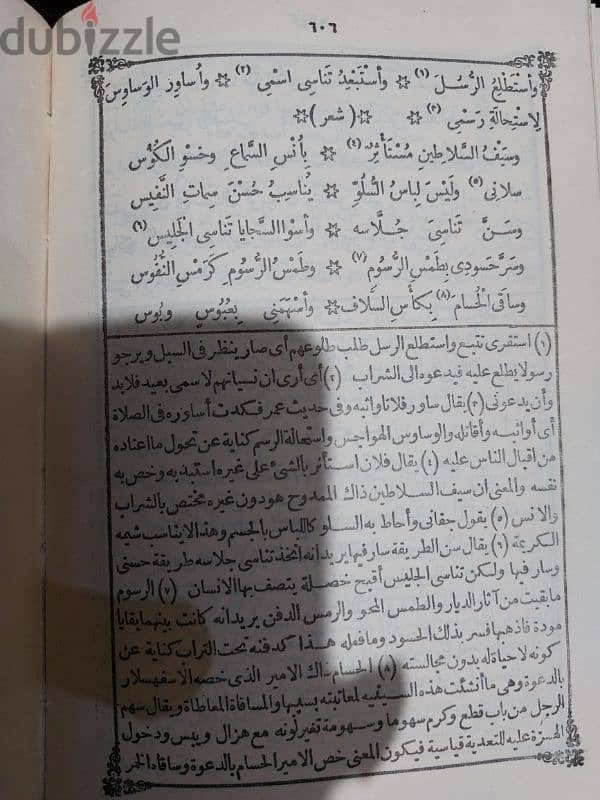 dubizzle
٦٠٦
وأستطلع الرُّسُلَ (١) ☆ وأستبعدُ تناسى اسمى (٢) ☆ وأُساوِرُ الوَساوِسَ
لاِستِحالةِ رَسْمى (٣) ☆ ☆ (شعر) ☆
وسَيْفُ السَّلاطين مُسْتَأْثِرٌ (٤) ☆ بأُنْسِ السَّماعِ وحَسْوِ الكُؤُسْ
سلانى (٥) ولَيْسَ لِباسُ السُّلُوِّ ☆ يُناسِبُ حُسْنَ سِماتِ النَّفِيسْ
وسَنَّ تَناسِىَ جُلَّاسِه ☆ وأسوأ السَّجايا تَناسِى الجَلِيسْ (٦)
وسَرَّ حَسودِى بِطَمْسِ الرُّسُومِ (٧) ☆ وطَمْسُ الرُّسُومِ كَرَمْسِ النُّفُوسْ
وساقَى الحُسامَ (٨) بِكأْسِ السُّلافِ ☆ وأَسْهَمَنِى بِعُبُوسٍ وبُوسْ
(١) استقرى تتبع واستطلع الرسل طلب طلوعهم أى صار ينظر فى السبل ويرجو
رسولا يطلع عليه فيدعوه الى الشراب (٢) أى أرى ان نسيانهم لاسمى بعيد فلا بد
وأن يدعونى (٣) يقال ساور فلانا واثبه وفى حديث عمر فكدت أساوره فى الصلاة
أى أواثبه وأقاتله والوساوس الهواجس واستحالة الرسم كناية عن تحول ما اعتاده
من اقبال الناس عليه (٤) يقال فلان استأثر بالشئ على غيره استبد به وخص به
نفسه والمعنى ان سيف السلاطين ذاك الممدوح هو دون غيره مختص بالشراب
والانس (٥) يقول جفانى وأحاط به السلو كاللباس بالجسم وهذا لا يناسب شيمه
الكريمة (٦) يقال سن الطريقة سار فيها يريد انه اتخذ تناسى جلاسه طريقة حسنى
وسار فيها ولكن تناسى الجليس أقبح خصلة يتصف بها الانسان (٧) الرسوم
ما بقيت من آثار الديار والطمس المحو والرمس الدفن يريد انه كانت بينهما بقايا
مودة فاذهبها فسر بذلك الحسود وما فعله هذا كدفنه تحت التراب كناية عن
كونه لا حياة له بدون مجالسته (٨) الحسام ذاك الامير الذى خصه الاسفهسلار
بالدعوة وهى ما أنشئت هذه السينيه لمعاتبته بسببها والمساقاة المعاطاة ويقال سهم
الرجل من باب قطع وكرم سهوما وسهومة تغير لونه مع هزال ويبس ودخول
الهمزة عليه للتعدية قياسية فيكون المعنى خص الامير الحسام بالدعوة وساقاه الخمر